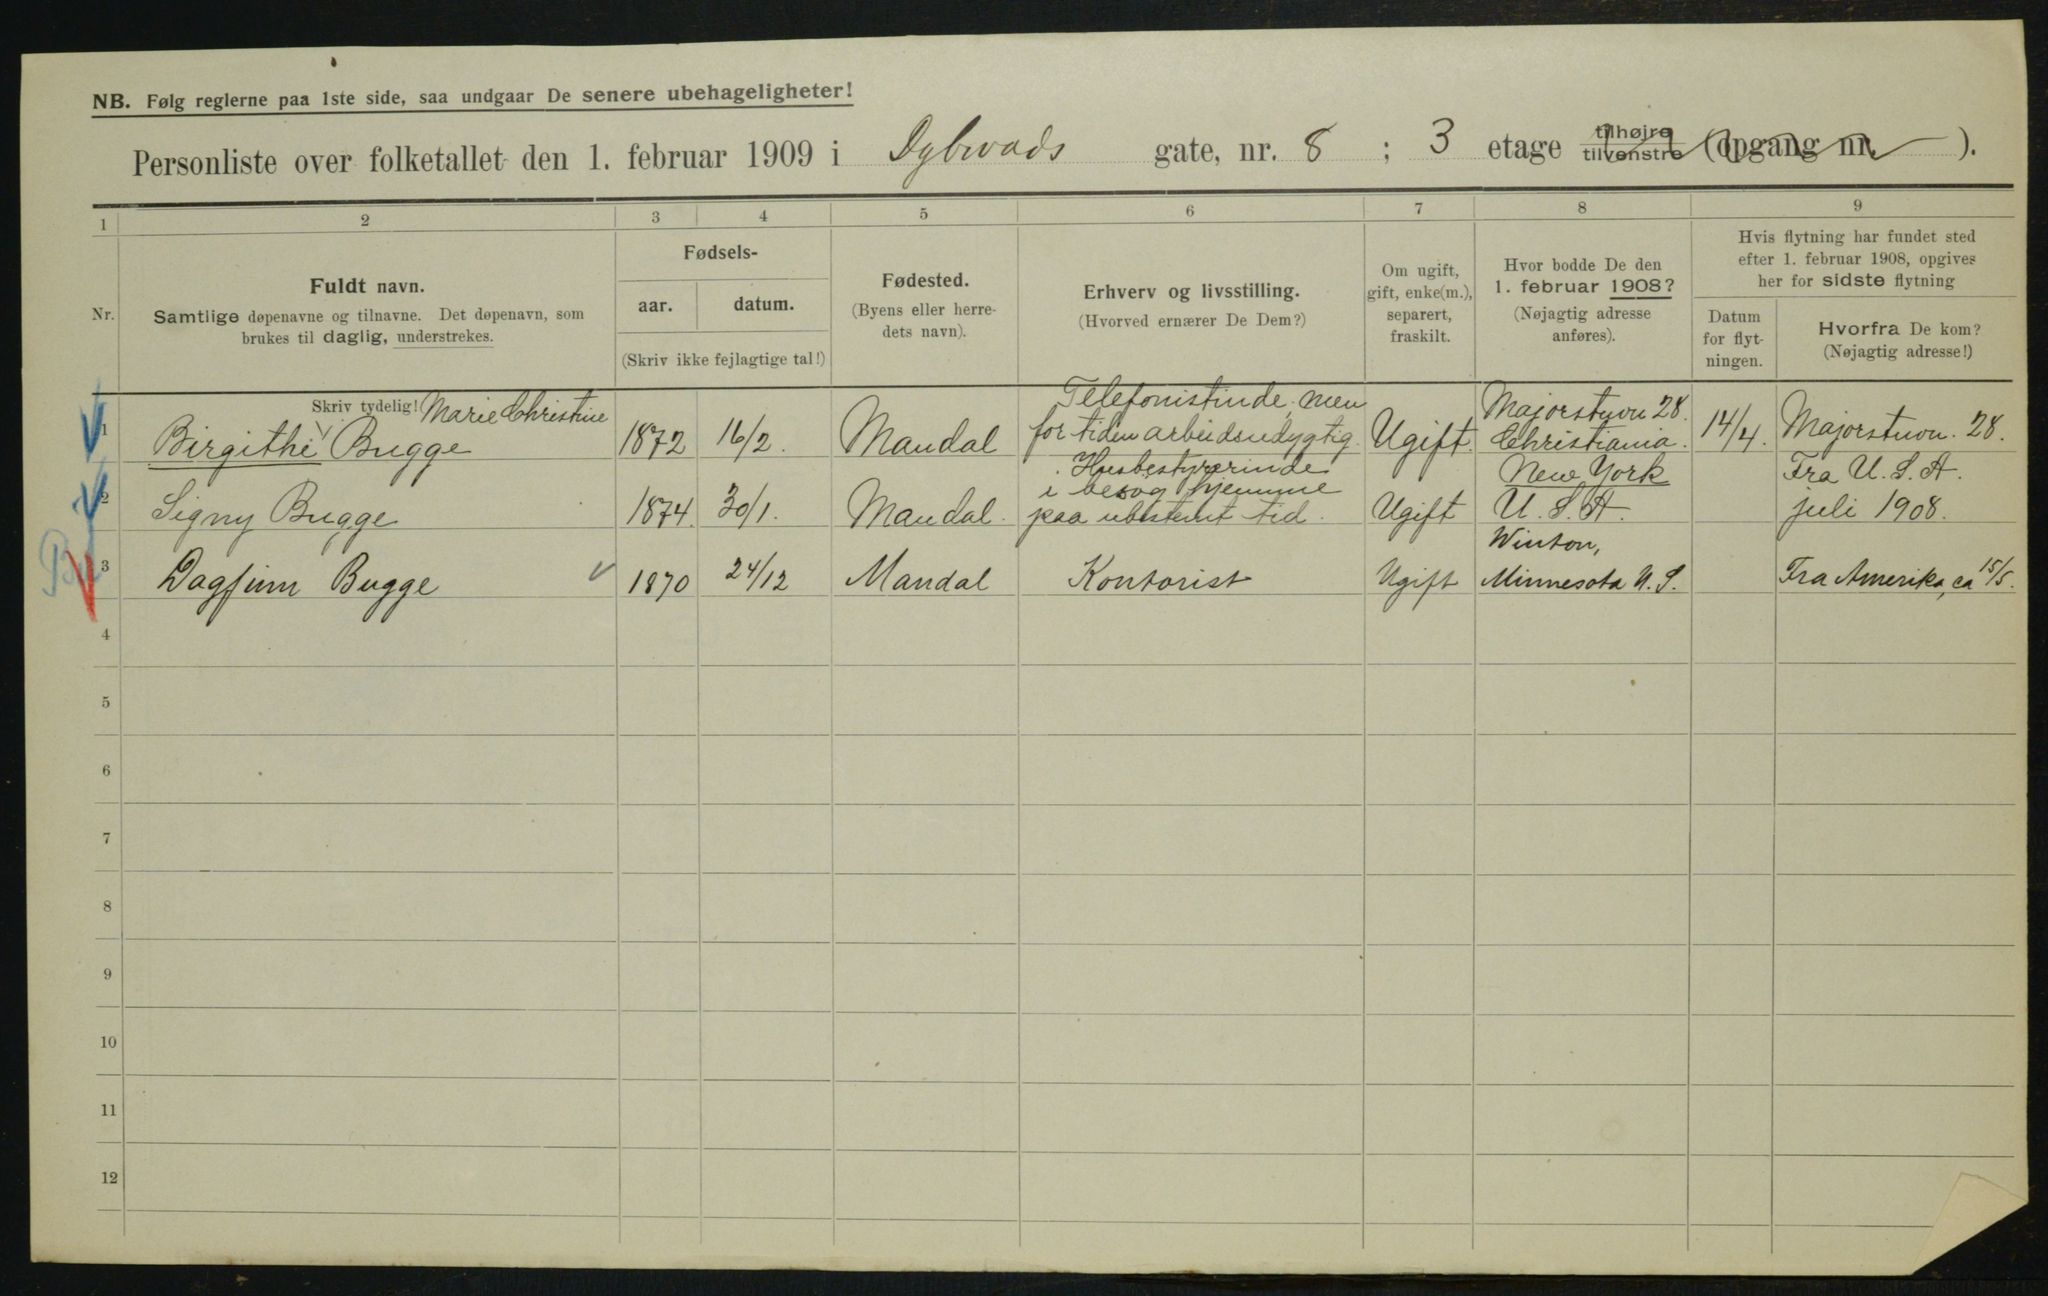 NB. Følg reglerne paa 1ste side, saa undgaar De senere ubehageligheter!
Personliste over folketallet den 1. februar 1909 i Dybwads gate, nr. 8 ; 3 etage tilhøjre tilvenstre (opgang nr. ).
1 2 3 4 5 6 7 8 9
Nr.
Fuldt navn.
Samtlige døpenavne og tilnavne. Det døpenavn, som
brukes til daglig, understrekes.
Fødsels-
aar. datum.
(Skriv ikke fejlagtige tal!)
Fødested.
(Byens eller herre-
dets navn).
Erhverv og livsstilling.
(Hvorved ernærer De Dem?)
Om ugift,
gift, enke(m.),
separert,
fraskilt.
Hvor bodde De den
1. februar 1908?
(Nøjagtig adresse
anføres).
Hvis flytning har fundet sted
efter 1. februar 1908, opgives
her for sidste flytning
Datum
for flyt-
ningen.
Hvorfra De kom?
(Nøjagtig adresse!)
Skriv tydelig!
1
Marie Christine
Birgithe Bugge
1872 16/2. Mandal
Telefonistinde, men
for tiden arbeidsudygtig.
Ugift.
Majorstuvn 28.
Christiania.
14/4. Majorstuvn. 28.
2
Signy Bugge
1874. 30/1. Mandal.
Husbestyrerinde
i besøg hjemme
paa ubestemt tid.
Ugift
New York
U. S. A.
Fra U. S. A.
juli 1908.
3
Dagfinn Bugge
1870 24/12 Mandal Kontorist Ugift
Winton,
Minnesota U. S.
Fra Amerika, ca 15/5.
4
5
6
7
8
9
10
11
12